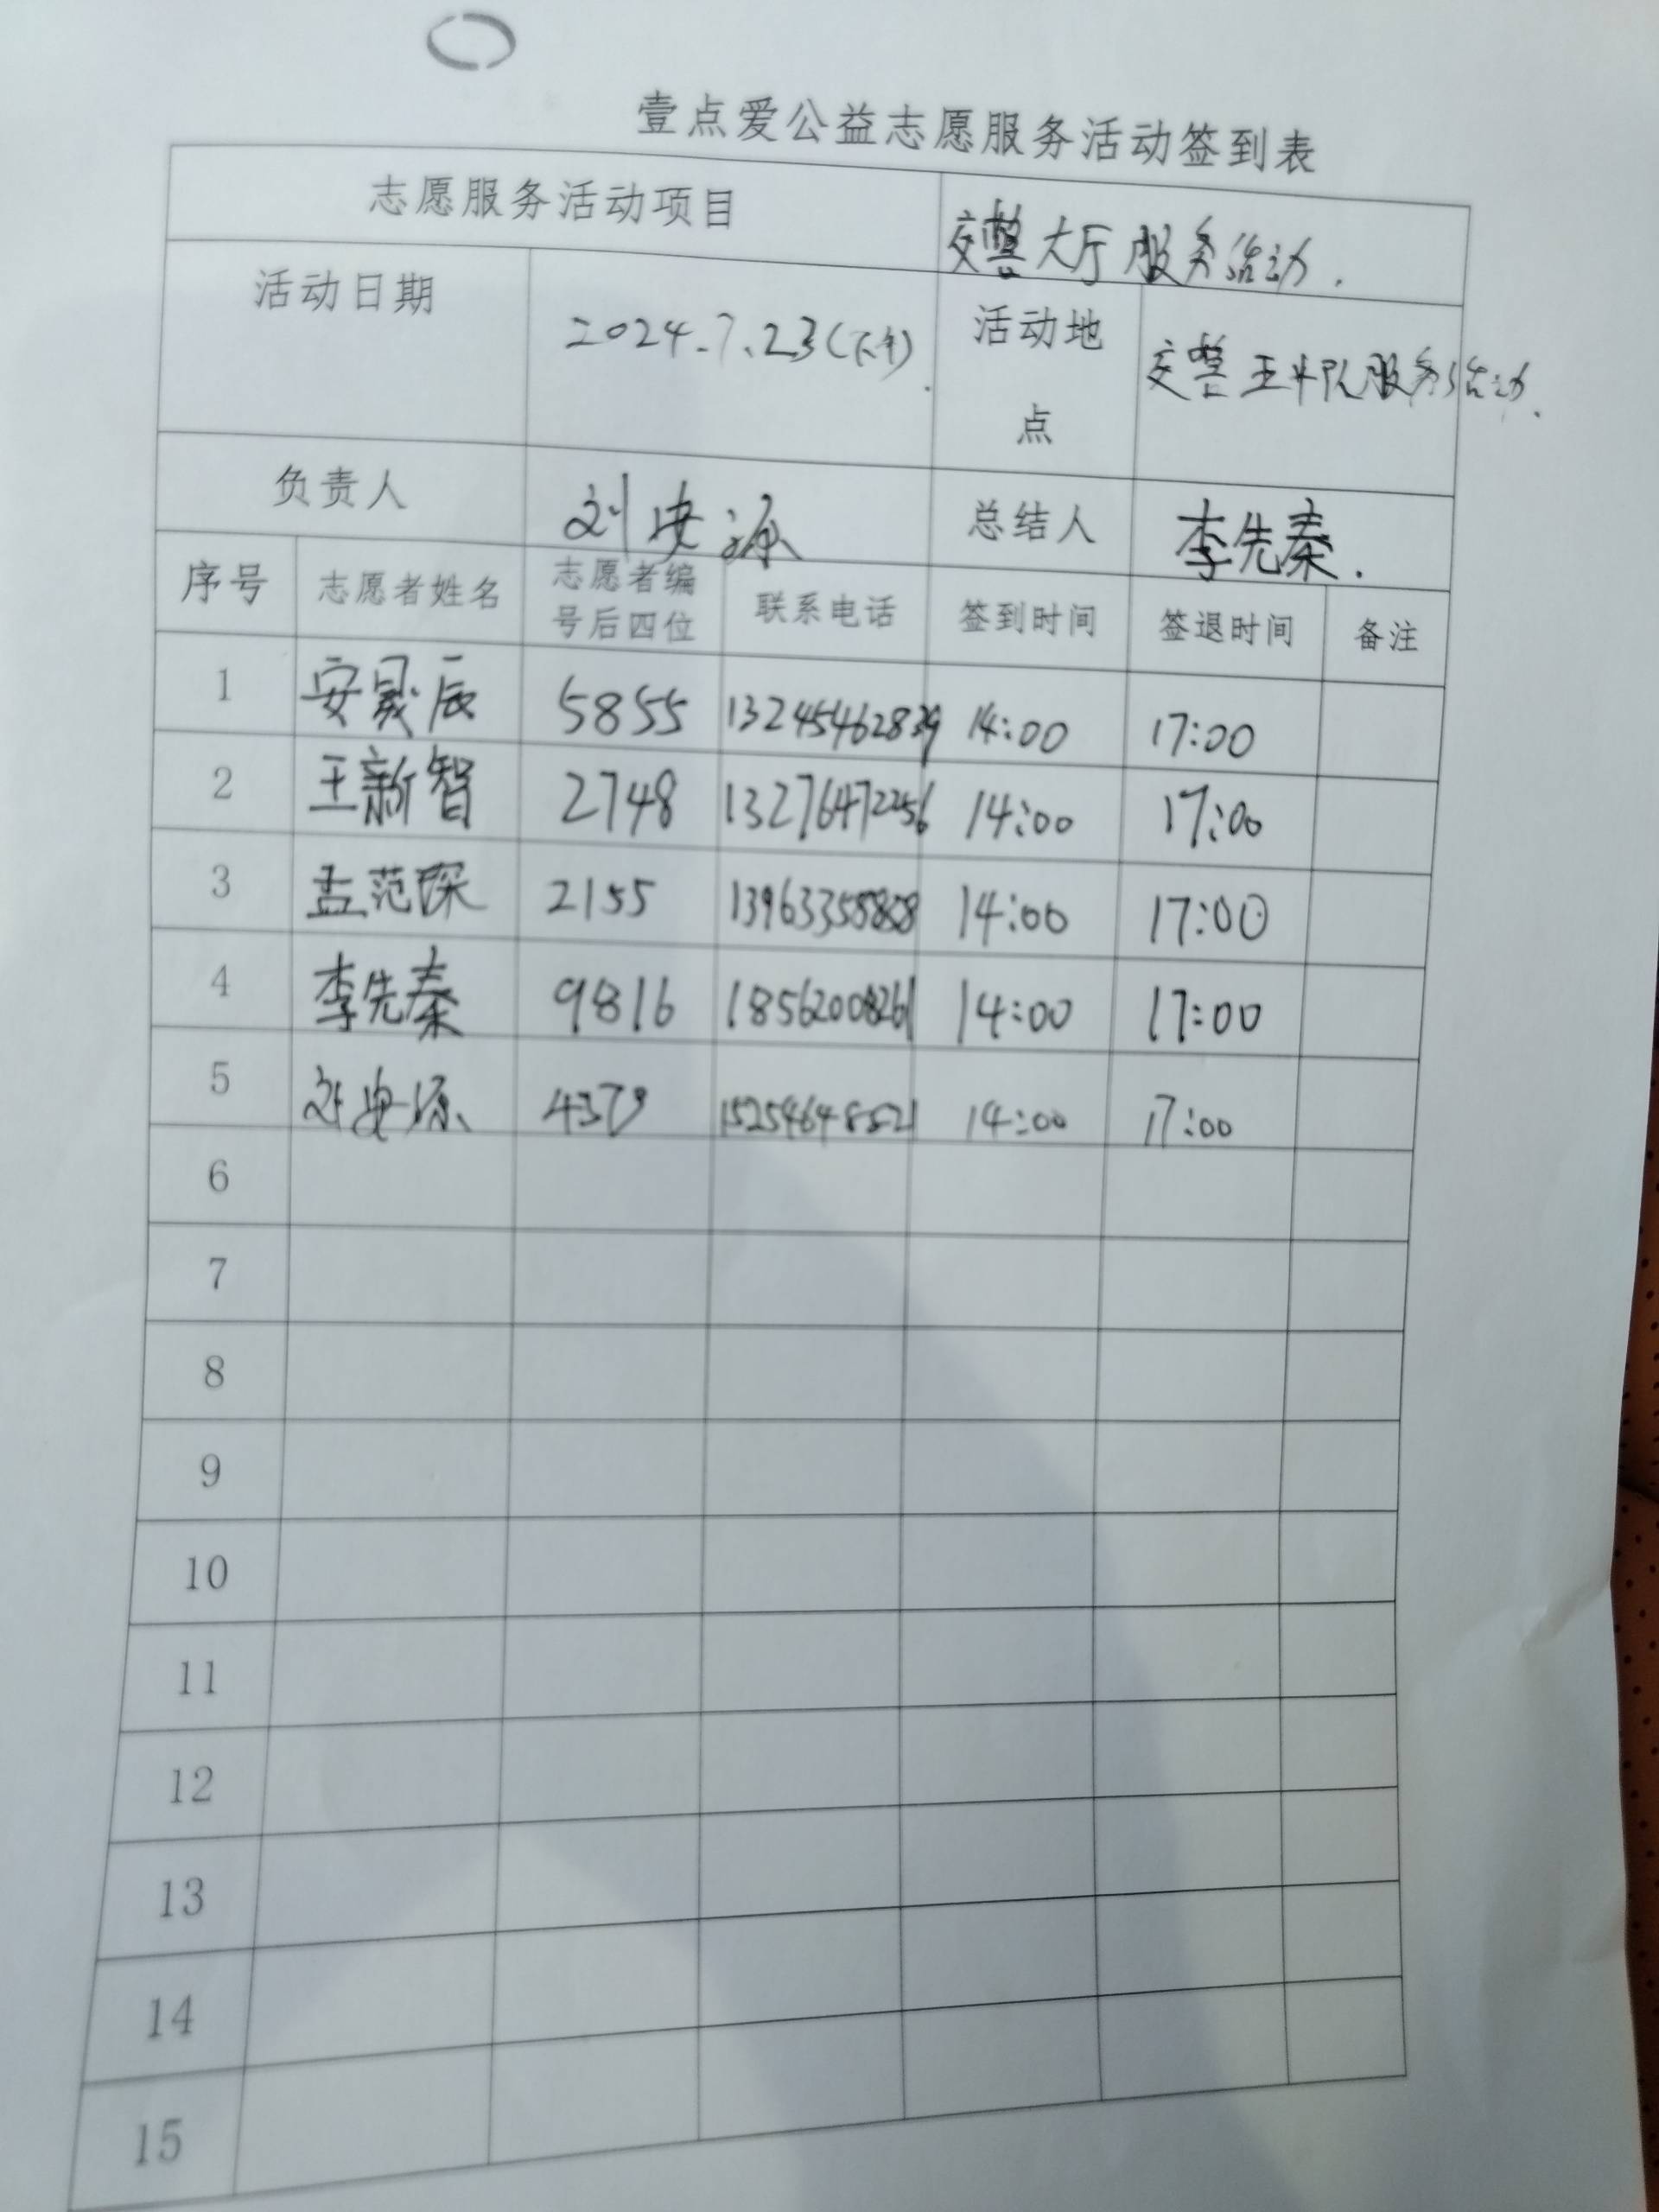 壹点爱公益志愿服务活动签到表
志愿服务活动项目 交警大厅服务活动.
活动日期 2024.7.23(下午). 活动地点 交警五中队服务活动.
负责人 刘安源 总结人 李先秦.
序号 志愿者姓名 志愿者编号后四位 联系电话 签到时间 签退时间 备注
1 安晟辰 5855 13245462839 14:00 17:00
2 王新智 2748 13276472256 14:00 17:00
3 孟范琛 2155 14:00 17:00
4 李先秦 9816 18562008261 14:00 17:00
5 刘安源 4379 15254648521 14:00 17:00
6
7
8
9
10
11
12
13
14
15